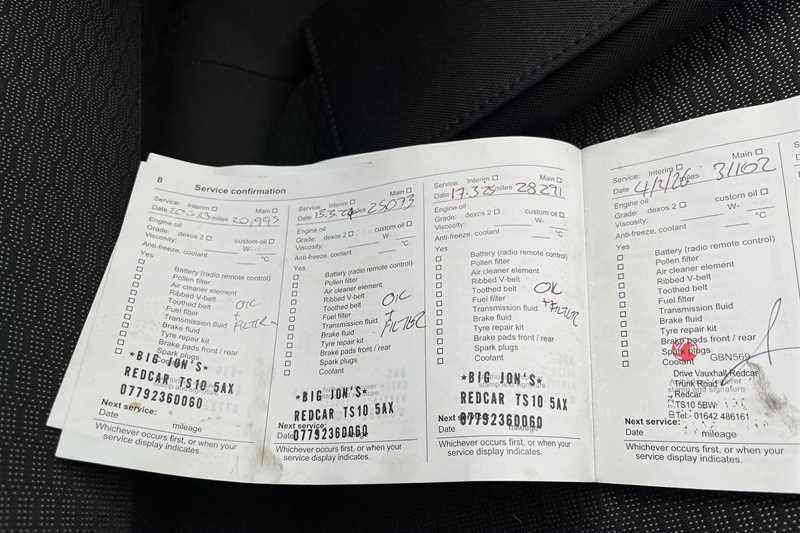 8 Service confirmation
Service: Interim ☐ Main ☐
Date 20.3.23 miles 20,993
Engine oil
Grade: dexos 2 ☐ custom oil ☐
Viscosity: W-
Anti-freeze, coolant °C
Yes
☐ Battery (radio remote control)
☐ Pollen filter
☐ Air cleaner element
☐ Ribbed V-belt
☐ Toothed belt
☐ Fuel filter
☐ Transmission fluid
☐ Brake fluid
☐ Tyre repair kit
☐ Brake pads front / rear
☐ Spark plugs
☐ Coolant
OIL
+
FILTER
*BIG JON'S*
REDCAR TS10 5AX
07792360060
Next service:
Date mileage
Whichever occurs first, or when your
service display indicates.
Service: Interim ☐ Main ☐
Date 15.3.24 miles 25073
Engine oil
Grade: dexos 2 ☐ custom oil ☐
Viscosity: W-
Anti-freeze, coolant °C
Yes
☐ Battery (radio remote control)
☐ Pollen filter
☐ Air cleaner element
☐ Ribbed V-belt
☐ Toothed belt
☐ Fuel filter
☐ Transmission fluid
☐ Brake fluid
☐ Tyre repair kit
☐ Brake pads front / rear
☐ Spark plugs
☐ Coolant
OIL
+
FILTER
*BIG JON'S*
REDCAR TS10 5AX
07792360060
Next service:
Date mileage
Whichever occurs first, or when your
service display indicates.
Service: Interim ☐ Main ☐
Date 17.3.25 miles 28291
Engine oil
Grade: dexos 2 ☐ custom oil ☐
Viscosity: W-
Anti-freeze, coolant °C
Yes
☐ Battery (radio remote control)
☐ Pollen filter
☐ Air cleaner element
☐ Ribbed V-belt
☐ Toothed belt
☐ Fuel filter
☐ Transmission fluid
☐ Brake fluid
☐ Tyre repair kit
☐ Brake pads front / rear
☐ Spark plugs
☐ Coolant
OIL
+ FILTER
stamp and signature
*BIG JON'S*
REDCAR TS10 5AX
07792360060
Next service:
Date mileage
Whichever occurs first, or when your
service display indicates.
Service: Interim ☐ Main ☐
Date 4/3/26 miles 31102
Engine oil
Grade: dexos 2 ☐ custom oil ☐
Viscosity: W-
Anti-freeze, coolant °C
Yes
☐ Battery (radio remote control)
☐ Pollen filter
☐ Air cleaner element
☐ Ribbed V-belt
☐ Toothed belt
☐ Fuel filter
☐ Transmission fluid
☐ Brake fluid
☐ Tyre repair kit
☐ Brake pads front / rear
☐ Spark plugs
☐ Coolant
GBN569
stamp and signature
Drive Vauxhall Redcar
Trunk Road
Redcar
TS10 5BW
Tel:- 01642 486161
Next service:
Date mileage
Whichever occurs first, or when your
service display indicates.